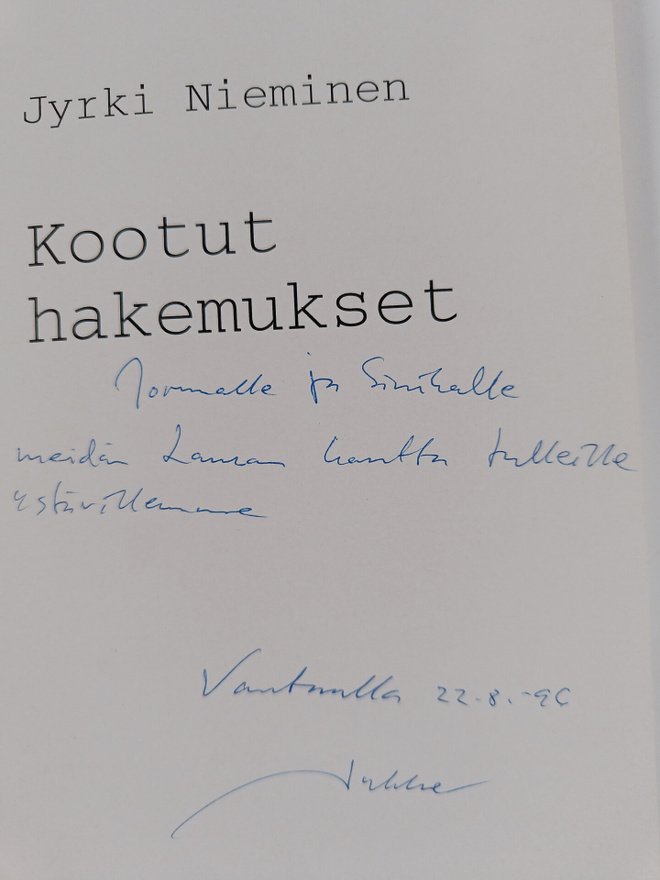 Jyrki Nieminen
Kootut
hakemukset
Jormalle ja Sinikalle
meidän Lauran kautta tulleille
ystävillemme
Vantaalla 22.8.-96